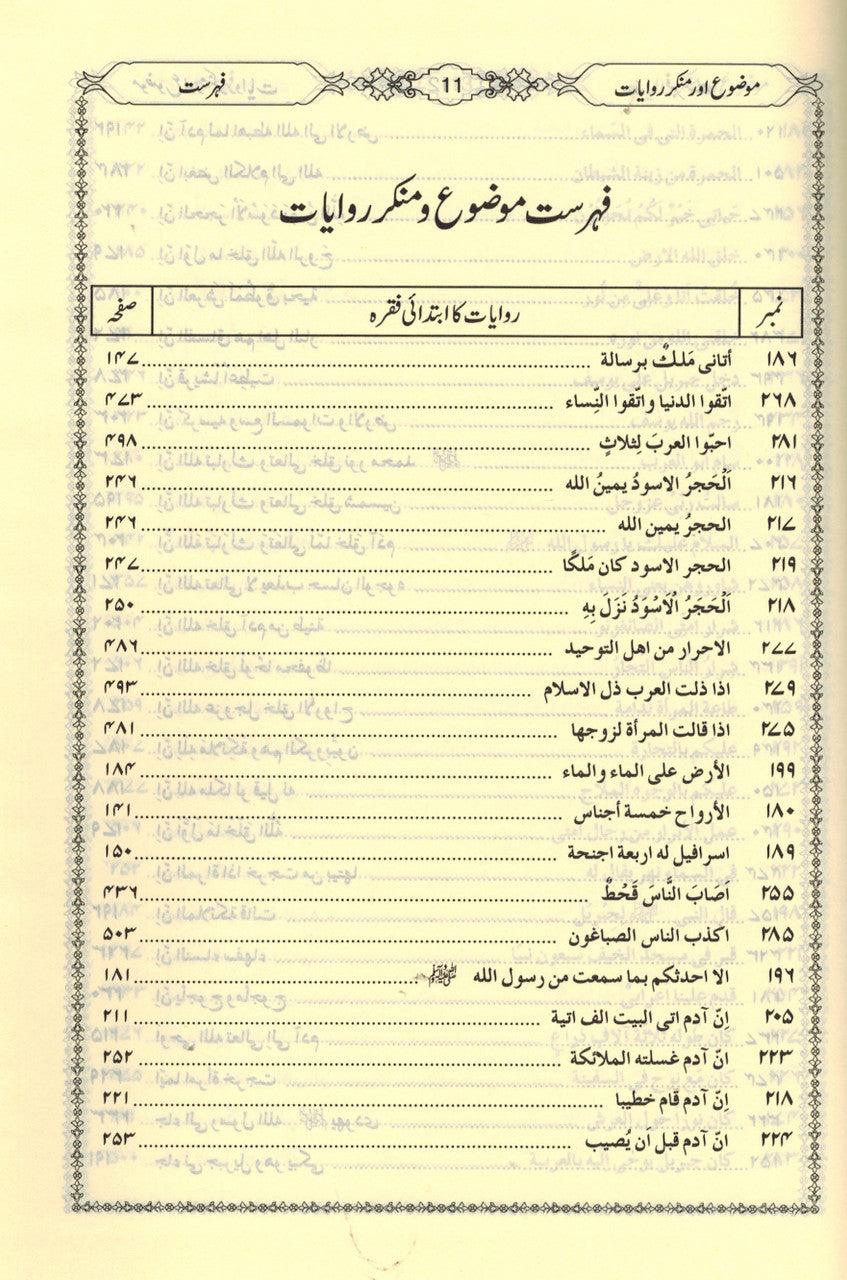 موضوع اور منکر روایات 11 فہرست
فہرست موضوع و منکر روایات
نمبر روایات کا ابتدائی فقرہ صفحہ
۱۸۶ أتانی مَلکٌ برسالة ۱۴۷
۲۶۸ اتّقوا الدنیا واتّقوا النِّساء ۴۷۳
۲۸۱ احبّوا العربَ لِثلاثٍ ۴۹۸
۲۱۶ اَلْحَجرُ الاسودُ یمینُ الله ۲۴۶
۲۱۷ الحجرُ یمین الله ۲۴۶
۲۱۹ الحجر الاسود کان مَلکًا ۲۴۷
۲۱۸ اَلْحَجَرُ الْاَسْوَدُ نَزَلَ بِهِ ۲۵۰
۲۷۷ الاحرار من اهل التوحید ۴۸۶
۲۷۹ اذا ذلت العرب ذل الاسلام ۴۹۳
۲۷۵ اذا قالت المرأة لزوجها ۴۸۱
۱۹۹ الأرض علی الماء والماء ۱۸۴
۱۸۰ الأرواح خمسة أجناس ۱۴۱
۱۸۹ اسرافیل له اربعة اجنحة ۱۵۰
۲۵۵ اَصَابَ النَّاسَ قَحُطٌ ۴۳۶
۲۸۵ اکذب الناس الصباغون ۵۰۳
۱۹۶ الا احدثکم بما سمعت من رسول الله ﷺ ۱۸۱
۲۰۵ اِنّ آدم اتی البیت الف اتیة ۲۱۱
۲۲۳ انّ آدم غسلته الملائکة ۲۵۲
۲۱۸ اِنّ آدم قام خطیبا ۲۲۱
۲۲۴ انّ آدم قبل اَن یُصیب ۲۵۳